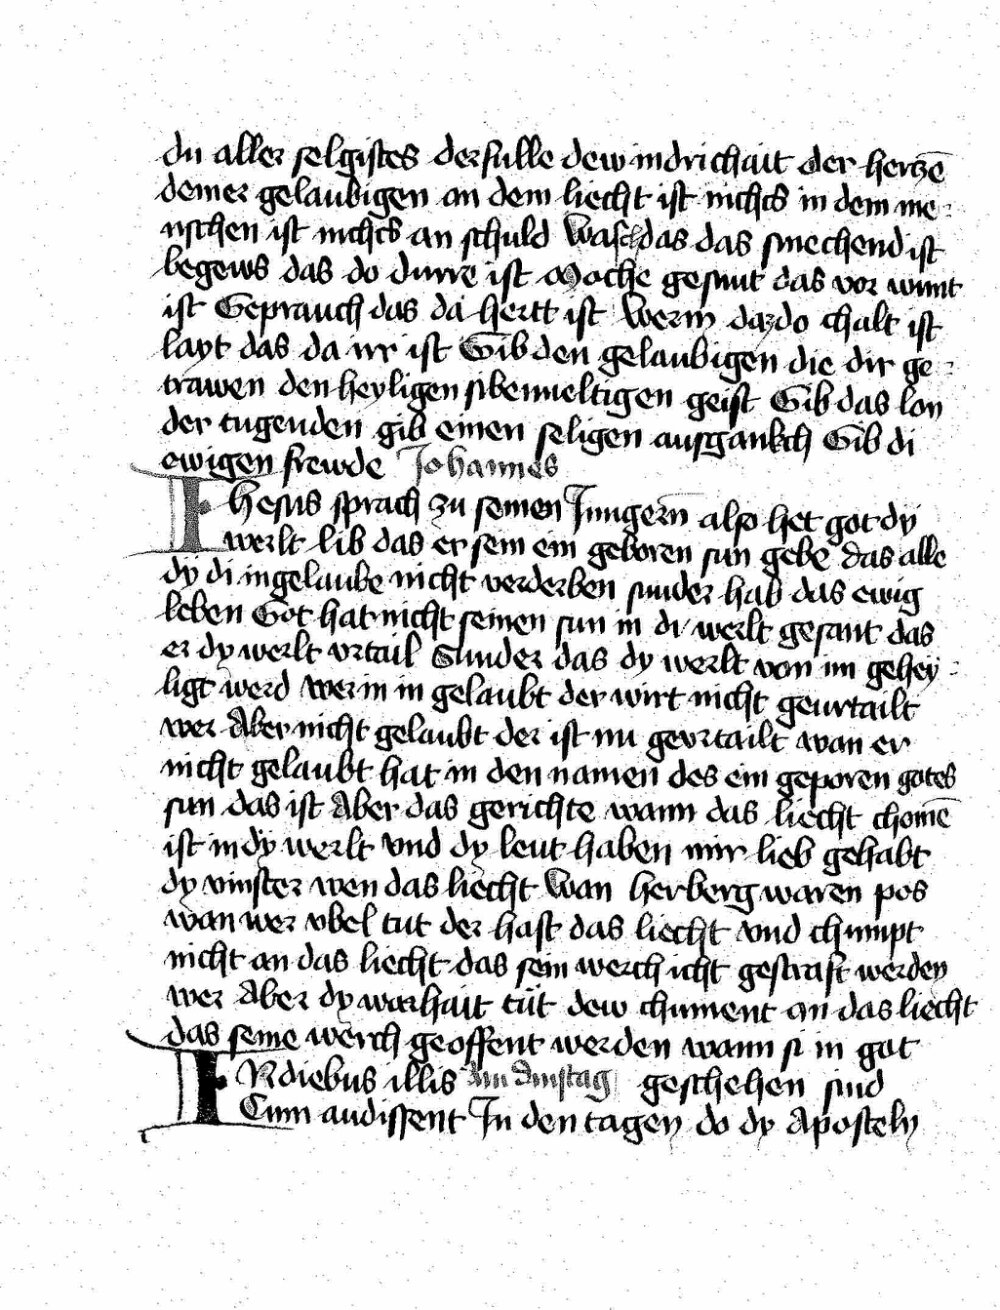 du aller selgistes derfulle dew indrichait der herczē
deiner gelaubigen an dem liecht ist nichcs in dem me:
nschen ist nichcs an schuld Wasch das das smechend ist
begews das do durre ist Mache gesunt das vor wunt
ist Geprauch das da hertt ist Werm daz do chalt ist
layt das da irr ist Gib den gelaubigen die dir ge:
trawen den heyligen sibenueltigen geist Gib das lon
der tugenden gib einen seligen ausgankch Gib di
ewigen frewde Johannes
Ihesus sprach zu seinen Jungern̄ also het got dy
werlt lib das er sein ein geboren sun gebe das alle
dy di in gelaube nicht verderben sunder hab das ewig
leben Got hat nicht seinen sun in di werlt gesant das
er dy werlt vrtail Sunder das dy werlt von im gehey:
ligt werd Wer in in gelaubt der wirt nicht geurtailt
wer Aber nicht gelaubt der ist nu gevrtailt wan er
nicht gelaubt hat in den namen des ein geporen gotes
sun das ist Aber das gerichte wann das liecht chomē
ist in dy werlt vnd dy leut haben mir lieb gehabt
dy vinster wen das liecht Wan herberg waren pos
wan wer vbel tut der hast das liecht vnd chumpt
nicht an das liecht das sein werch icht gestraft werden
wer Aber dy warhait tüt dew chument an das liecht
das seine werch geoffent werden wann si in got
IN diebus illis Am Amstag geschehen sind
Cum audissent In den tagen do dy Aposteln